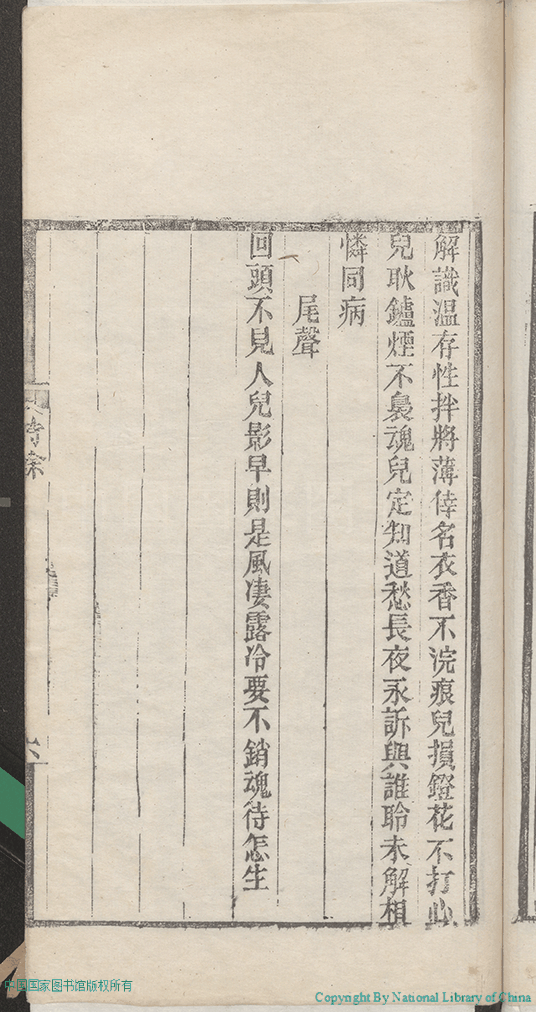 解識溫存性拌將薄倖名衣香不浣痕兒損鐙花不打心
兒耿鑪煙不裊魂兒定知道愁長夜永訴與誰聆未解相
憐同病
尾聲
回頭不見人兒影早則是風凄露冷要不銷魂待怎生
六
中国国家图书馆版权所有
Copyright By National Library of China